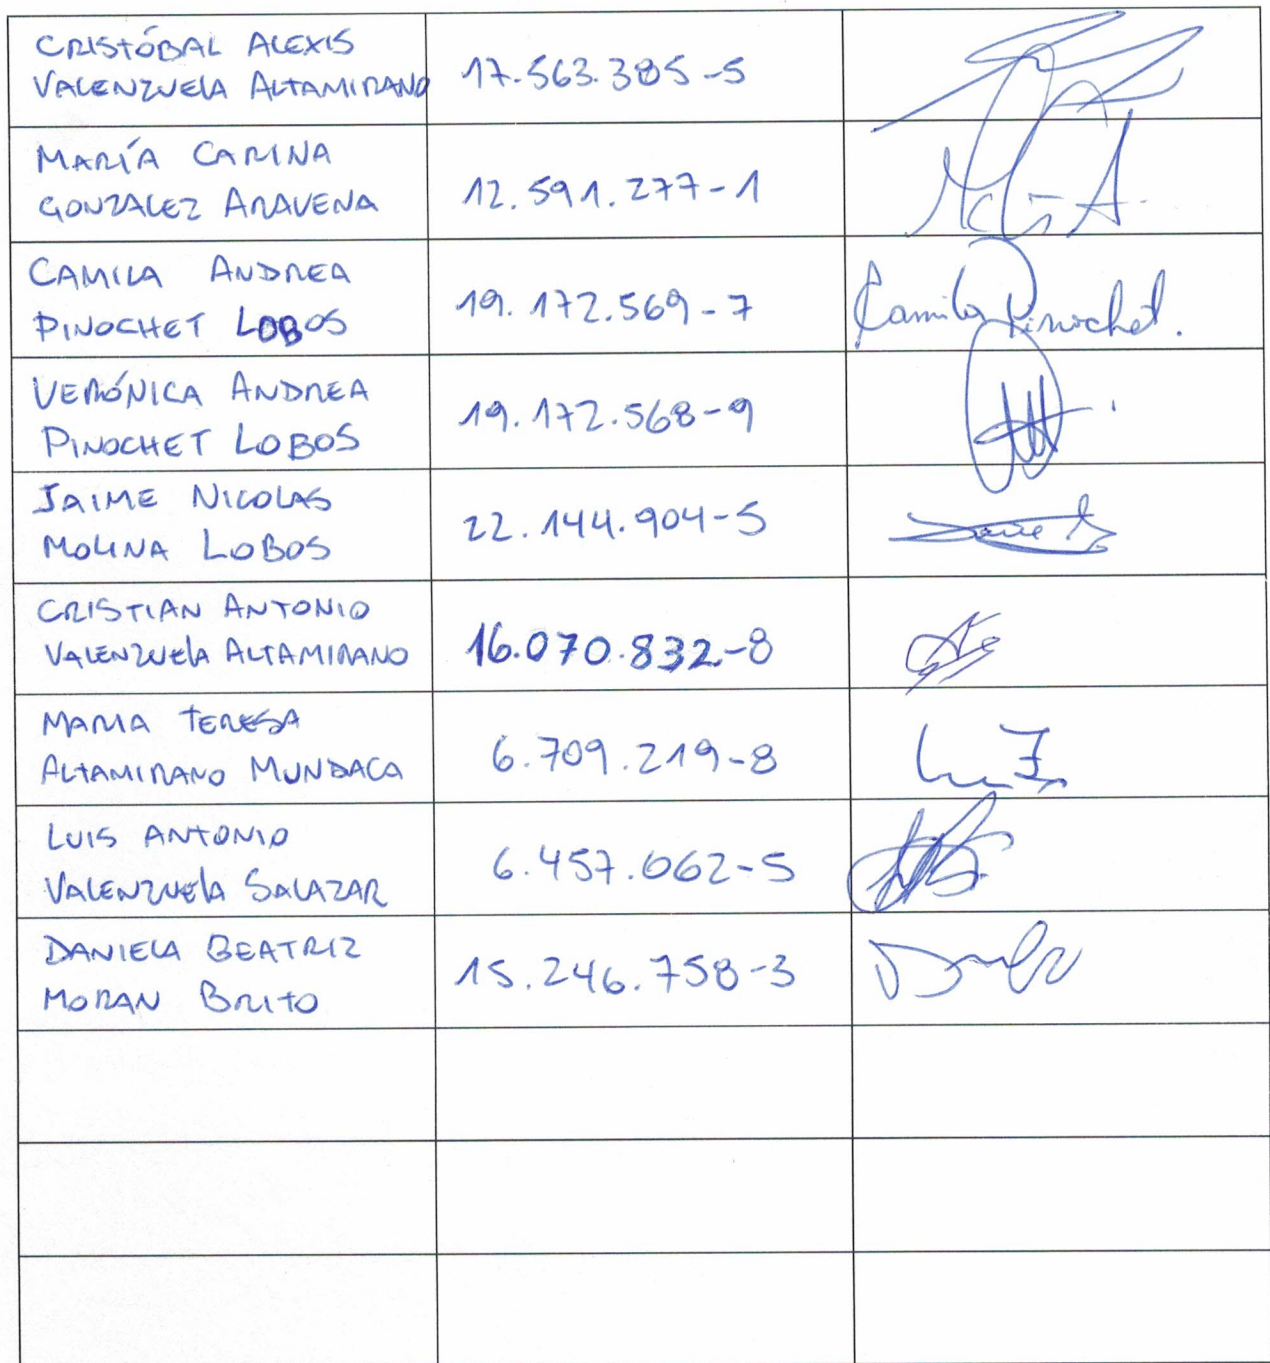 CRISTÓBAL ALEXIS
VALENZUELA ALTAMIRANO
17.563.385-5
MARÍA CARINA
GONZALEZ ARAVENA
12.591.277-1
CAMILA ANDREA
PINOCHET LOBOS
19.172.569-7
Camila Pinochet.
VERÓNICA ANDREA
PINOCHET LOBOS
19.172.568-9
JAIME NICOLAS
MOLINA LOBOS
22.144.904-5
CRISTIAN ANTONIO
VALENZUELA ALTAMIRANO
16.070.832-8
MARIA TERESA
ALTAMIRANO MUNDACA
6.709.219-8
LUIS ANTONIO
VALENZUELA SALAZAR
6.457.062-5
DANIELA BEATRIZ
MORAN BRITO
15.246.758-3